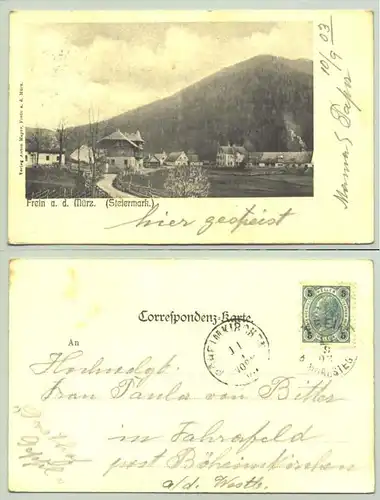 Verlag Anton Mayer, Frein a. d. Mürz.
10/9 03
Mama & Papa
Frein a. d. Mürz. (Steiermark.)
hier gespeist
Correspondenz-Karte.
An
Hochwolgb.
Frau Paula von Bitter
in Fahrafeld
post Böheimkirchen
a/d. Westb.